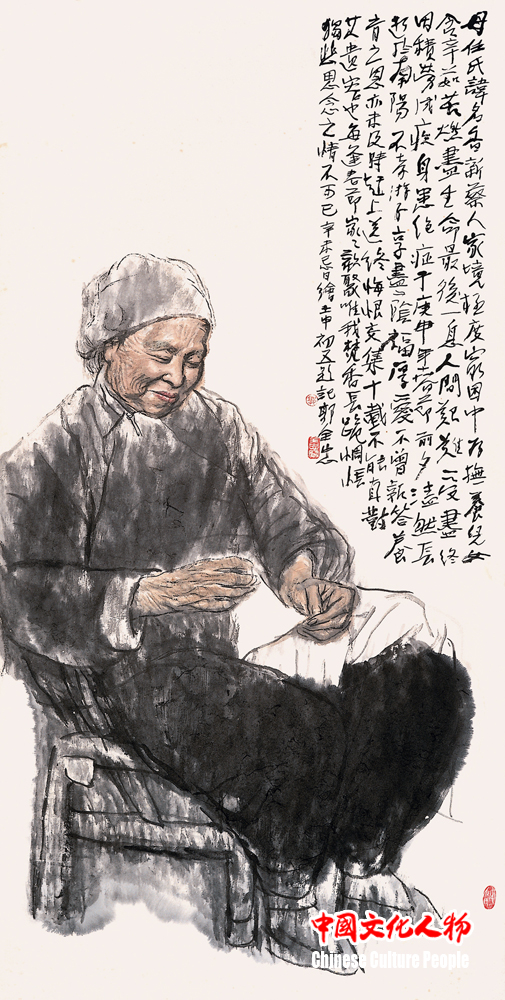 母任氏諱名香新蔡人家境極度窮困中为撫養兒女
含辛茹苦燃盡生命最後一息人間艱難受盡終
因積勞成疾身患絕症于庚申年春節前夕溘然長
逝於南陽不幸游子享盡陰福厚愛不曾報答養
育之恩亦未及時趕上送終悔恨交集十載不能自
遺容也每逢春節家家歡聚唯我焚香長跪惆悵
獨悲思念之情不可已辛未忌日繪壬申初五題記郭全忠
中國文化人物
Chinese Culture People